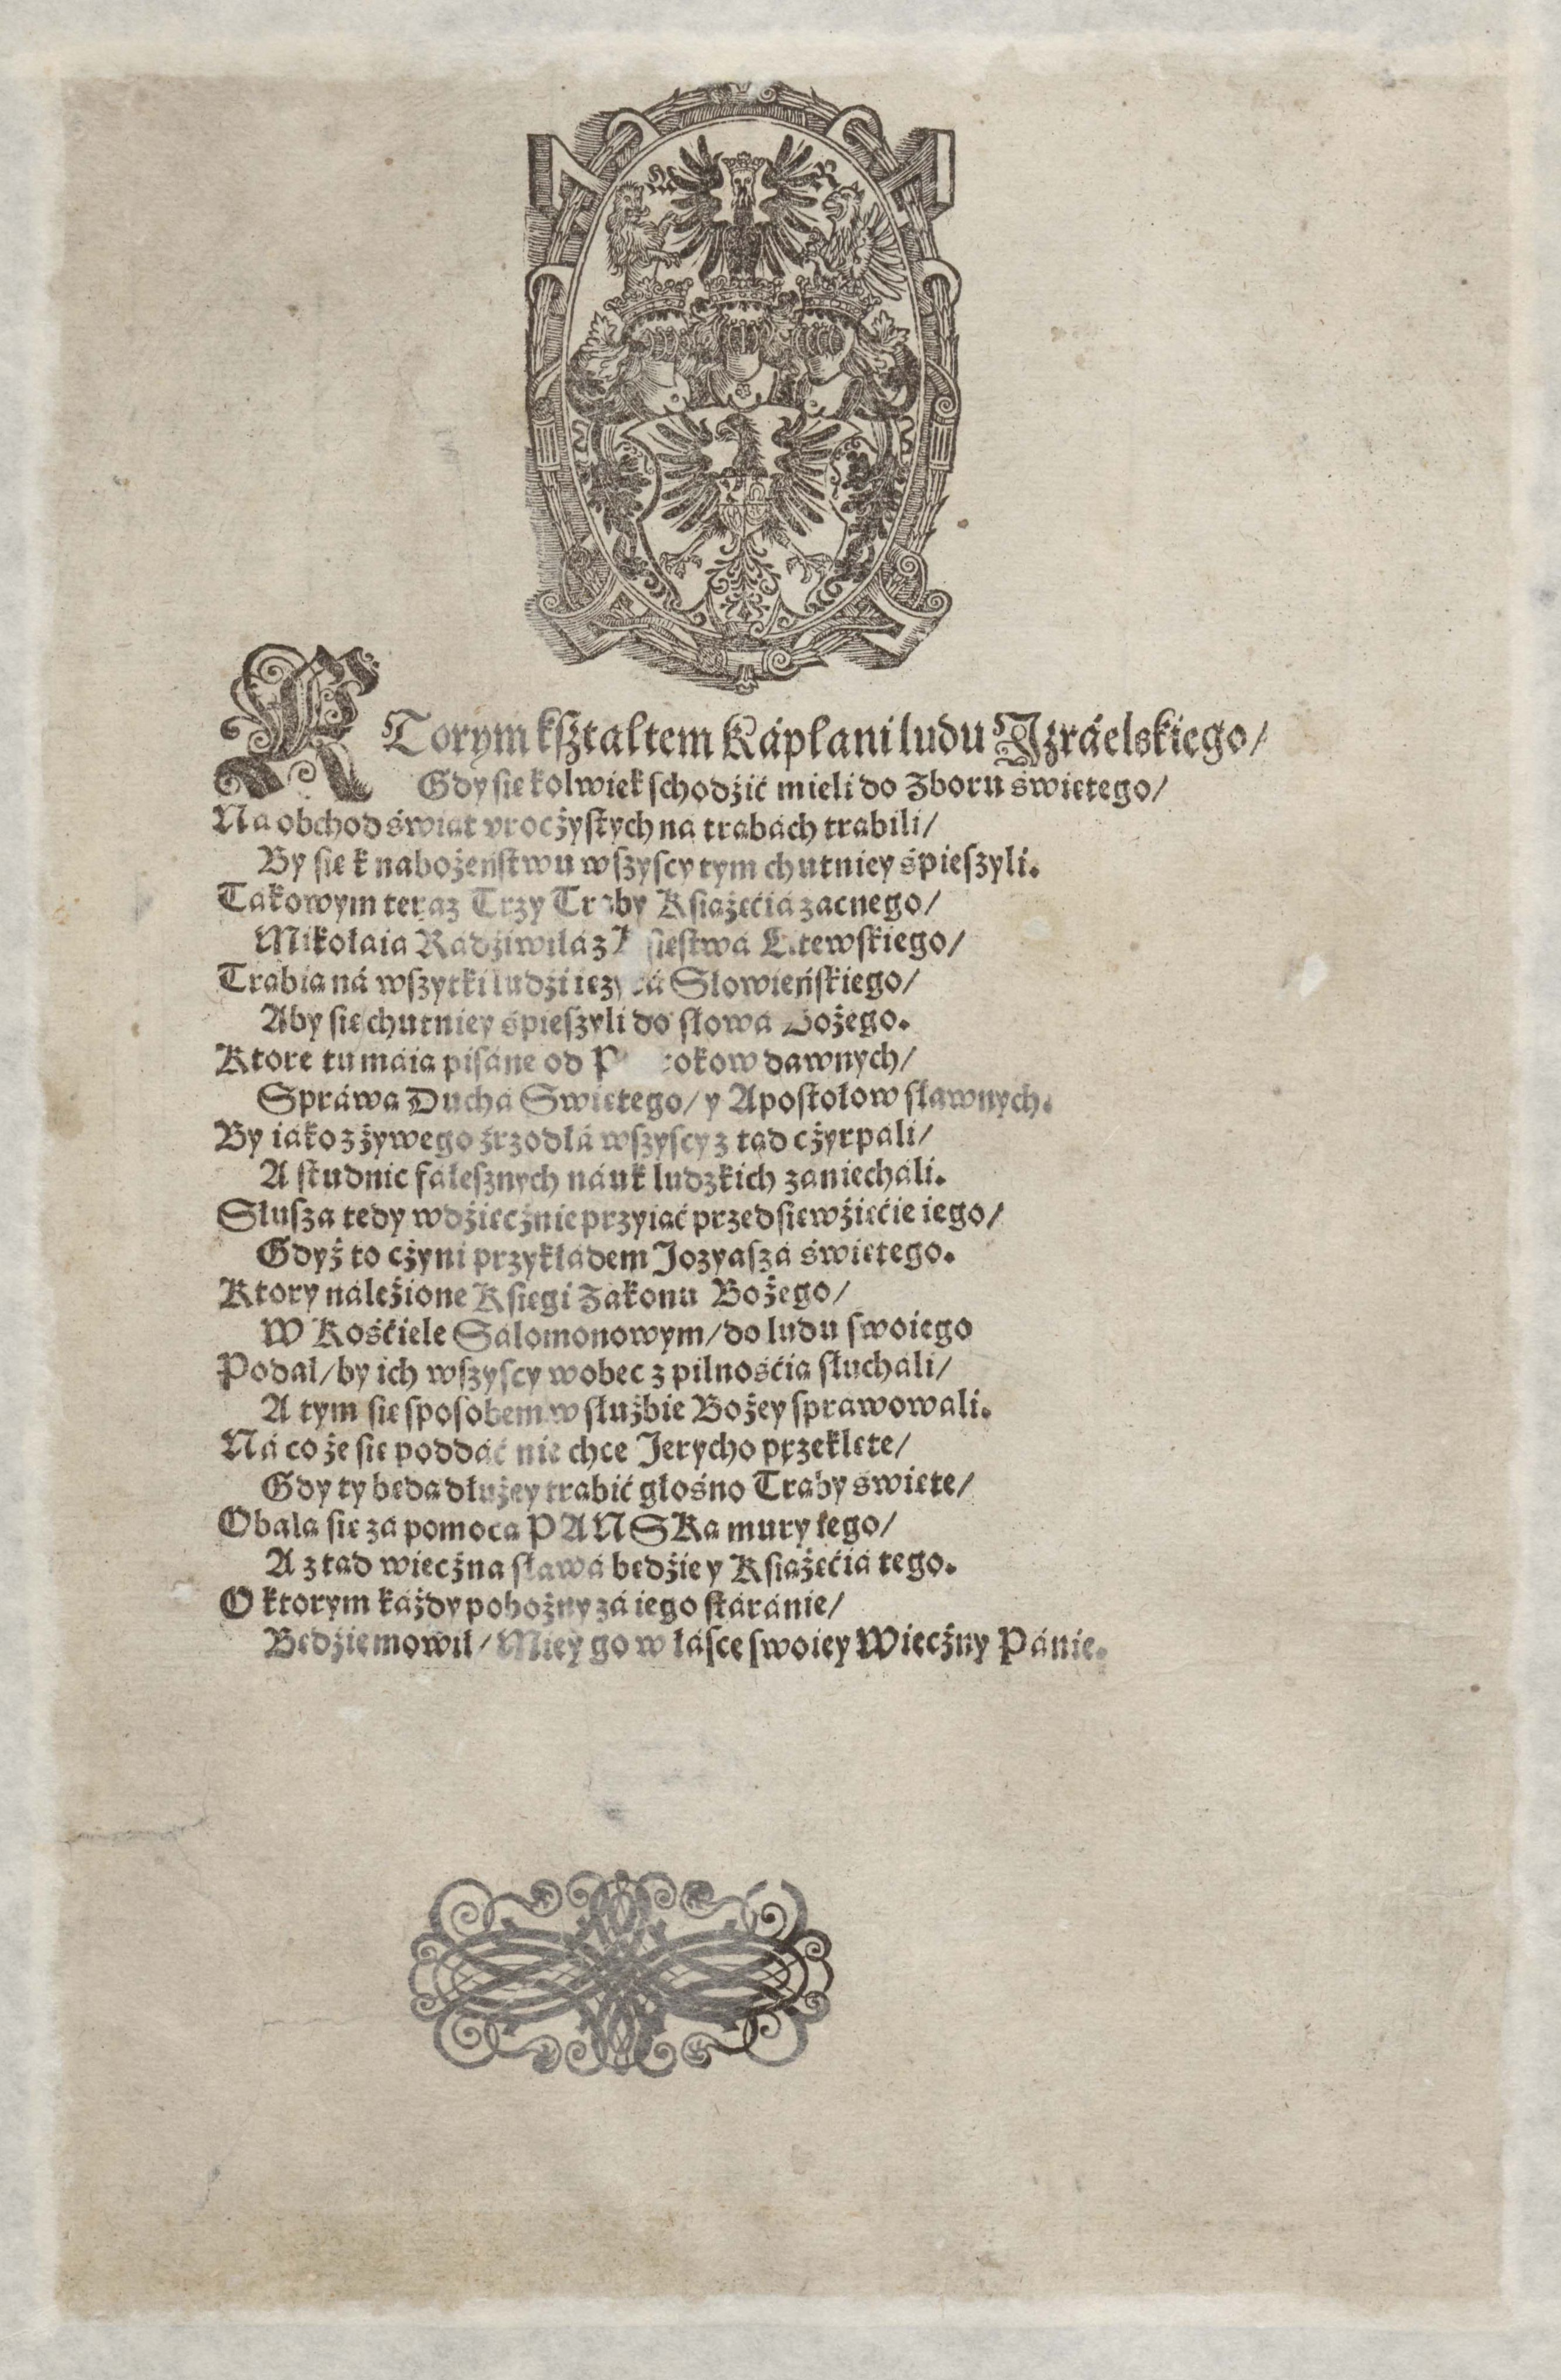 M R
KTorym kſztaltem Káplani ludu Izráelskiego/
Gdy ſię kolwiek ſchodźić mieli do Zboru świętego/
Na obchod świąt vrocżyſtych na trąbách trąbili/
By ſię k nabożeńſtwu wſzyſcy tym chutniey śpieſzyli.
Takowym teraz Trzy Trąby Kſiążęćiá zacnego/
Mikołaia Rádźiwiłá z Litewſkiego/
Trąbią ná wſzytki ludźi ięzyká Słowieńſkiego/
Aby ſię chutniey śpieſzyli do ſłowa Bożego.
Ktore tu máią piſáne od dawnych/
Spráwą Duchá Swiętego/ y Apoſtołow ſławnych.
By iáko z żywego źrzodłá wſzyſcy z tąd cżyrpáli/
A ſtudnic fałeſznych náuk ludzkich zániecháli.
Słuſza tedy wdźięcżnie przyiąć przedſięwźięćie iego/
Gdyż to cżyni przykłádem Jozyaſzá świętego.
Ktory náleźione Kſięgi Zakonu Bożego/
W Kośćiele Sálomonowym/ do ludu ſwoiego
Podał/ by ich wſzyſcy wobec z pilnośćią ſłucháli/
A tym ſię ſpoſobem w ſłużbie Bożey ſprawowali.
Ná co że ſię poddáć nie chce Jerycho przeklęte/
Gdy ty będą dłużey trąbić głośno Trąby święte/
Obalą ſię zá pomocą PANSKą mury iego/
A z tąd wiecżna ſławá będźie y Kſiążęćiá tego.
O ktorym káżdy pobożny zá iego ſtáránie/
Będźie mowił/ Miey go w łáſce ſwoiey Wiecżny Pánie.